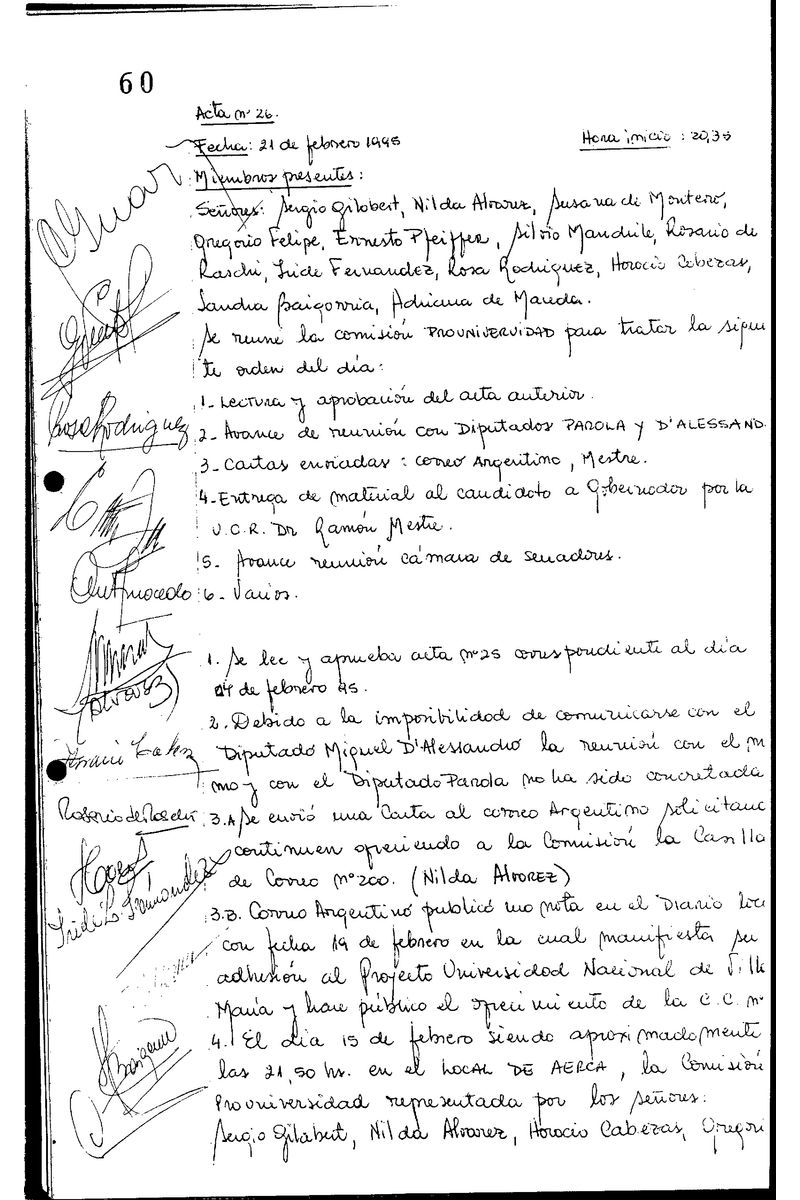 60
Acta nº 26.
Fecha: 21 de febrero 1995 Hora inicio: 20,35
Miembros presentes:
Señores: Sergio Gilabert, Nilda Alvarez, Susana de Montero,
Gregorio Felipe, Ernesto Pfeiffer, Silvio Mandrile, Rosario de
Raschi, Iride Fernandez, Rosa Rodriguez, Horacio Cabezas,
Sandra Baigorria, Adriana de Maueda.
Se reune la comisión PROUNIVERVIDAD para tratar la siguien
te orden del día:
1- Lectura y aprobación del acta anterior.
2- Avance de reunión con Diputados PAROLA y D'ALESSAND
3- Cartas enviadas: Correo Argentino, Mestre.
4- Entrega de material al candidato a Gobernador por la
U.C.R. Dr Ramón Mestre.
5- Avance reunión cámara de senadores.
6- Varios.
1. Se lee y aprueba acta nº 25 correspondiente al día
de febrero 95.
2. Debido a la imposibilidad de comunicarse con el
Diputado Miguel D'Alessandro la reunión con el m
mo y con el Diputado Parola no ha sido concretada
3.A Se envió una Carta al correo Argentino solicitand
continuen ofreciendo a la Comisión la Casilla
de Correo nº 200. (Nilda Alvarez)
3.B. Correo Argentino publicó una nota en el Diario loc
con fecha 19 de febrero en la cual manifiesta su
adhesión al Proyecto Universidad Nacional de Villa
María y hace público el ofrecimiento de la C.C. nº
4. El día 15 de febrero siendo aproximadamente
las 21,50 hs. en el LOCAL DE AERCA, la Comisión
Prouniversidad representada por los señores:
Sergio Gilabert, Nilda Alvarez, Horacio Cabezas, Gregori
Rosa Rodriguez
(ALVAREZ)
Rosario de Raschi
Iride L. Fernandez
Baigorria